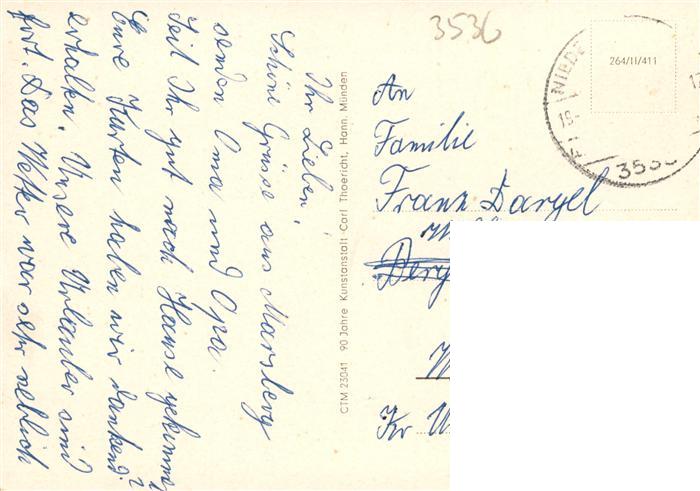 Ihr Lieben!
Schöne Grüsse aus Marsberg
senden Oma und Opa.
Seid Ihr gut nach Hause gekommen?
Eure Karten haben wir dankend
erhalten. Unsere Urlauber sind
fort. Das Wetter war sehr neblich
CTM 23041 90 Jahre Kunstanstalt Carl Thoericht, Hann. Münden
3536
264/II/411
NIEDE
3536
An
Familie
Franz Dargel
Kr